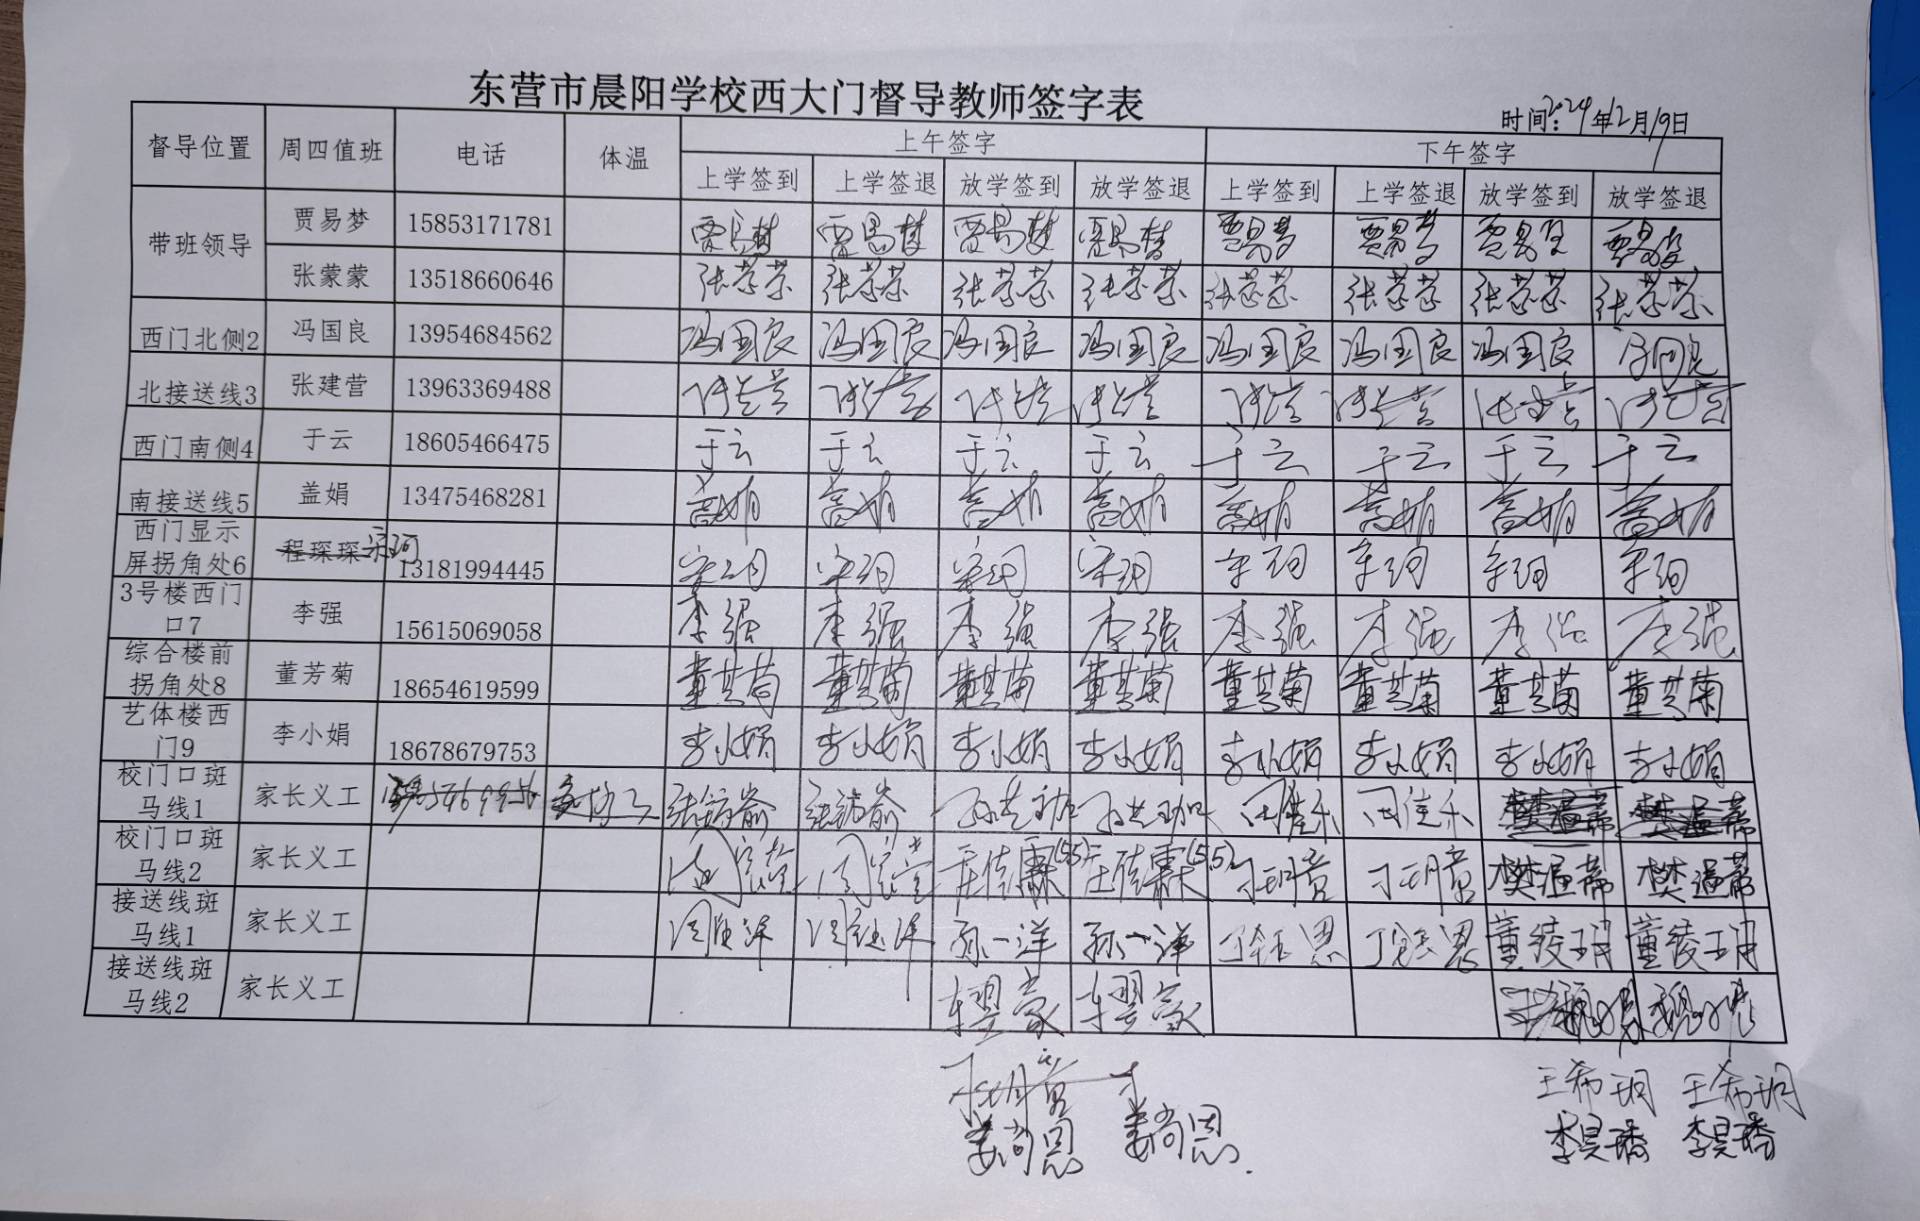 东营市晨阳学校西大门督导教师签字表
时间:2024年12月19日
督导位置 周四值班 电话 体温 上午签字 下午签字
上学签到 上学签退 放学签到 放学签退 上学签到 上学签退 放学签到 放学签退
带班领导
贾易梦 15853171781 贾易梦 贾易梦 贾易梦 贾易梦 贾易梦 贾易梦 贾易梦 贾易梦
张蒙蒙 13518660646 张蒙蒙 张蒙蒙 张蒙蒙 张蒙蒙 张蒙蒙 张蒙蒙 张蒙蒙 张蒙蒙
西门北侧2 冯国良 13954684562 冯国良 冯国良 冯国良 冯国良 冯国良 冯国良 冯国良 冯国良
北接送线3 张建营 13963369488 张建营 张建营 张建营 张建营 张建营 张建营 张建营 张建营
西门南侧4 于云 18605466475 于云 于云 于云 于云 于云 于云 于云 于云
南接送线5 盖娟 13475468281 盖娟 盖娟 盖娟 盖娟 盖娟 盖娟 盖娟 盖娟
西门显示
屏拐角处6 程琛琛 宋珂 13181994445 宋珂 宋珂 宋珂 宋珂 宋珂 宋珂 宋珂 宋珂
3号楼西门
口7 李强 15615069058 李强 李强 李强 李强 李强 李强 李强 李强
综合楼前
拐角处8 董芳菊 18654619599 董芳菊 董芳菊 董芳菊 董芳菊 董芳菊 董芳菊 董芳菊 董芳菊
艺体楼西
门9 李小娟 18678679753 李小娟 李小娟 李小娟 李小娟 李小娟 李小娟 李小娟 李小娟
校门口斑
马线1 家长义工
校门口斑
马线2 家长义工 庄佳霖(55) 庄佳霖(55)
接送线斑
马线1 家长义工 孙一洋 孙一洋 董绫玥 董绫玥
接送线斑
马线2 家长义工
王希玥 王希玥
姜尚恩 姜尚恩